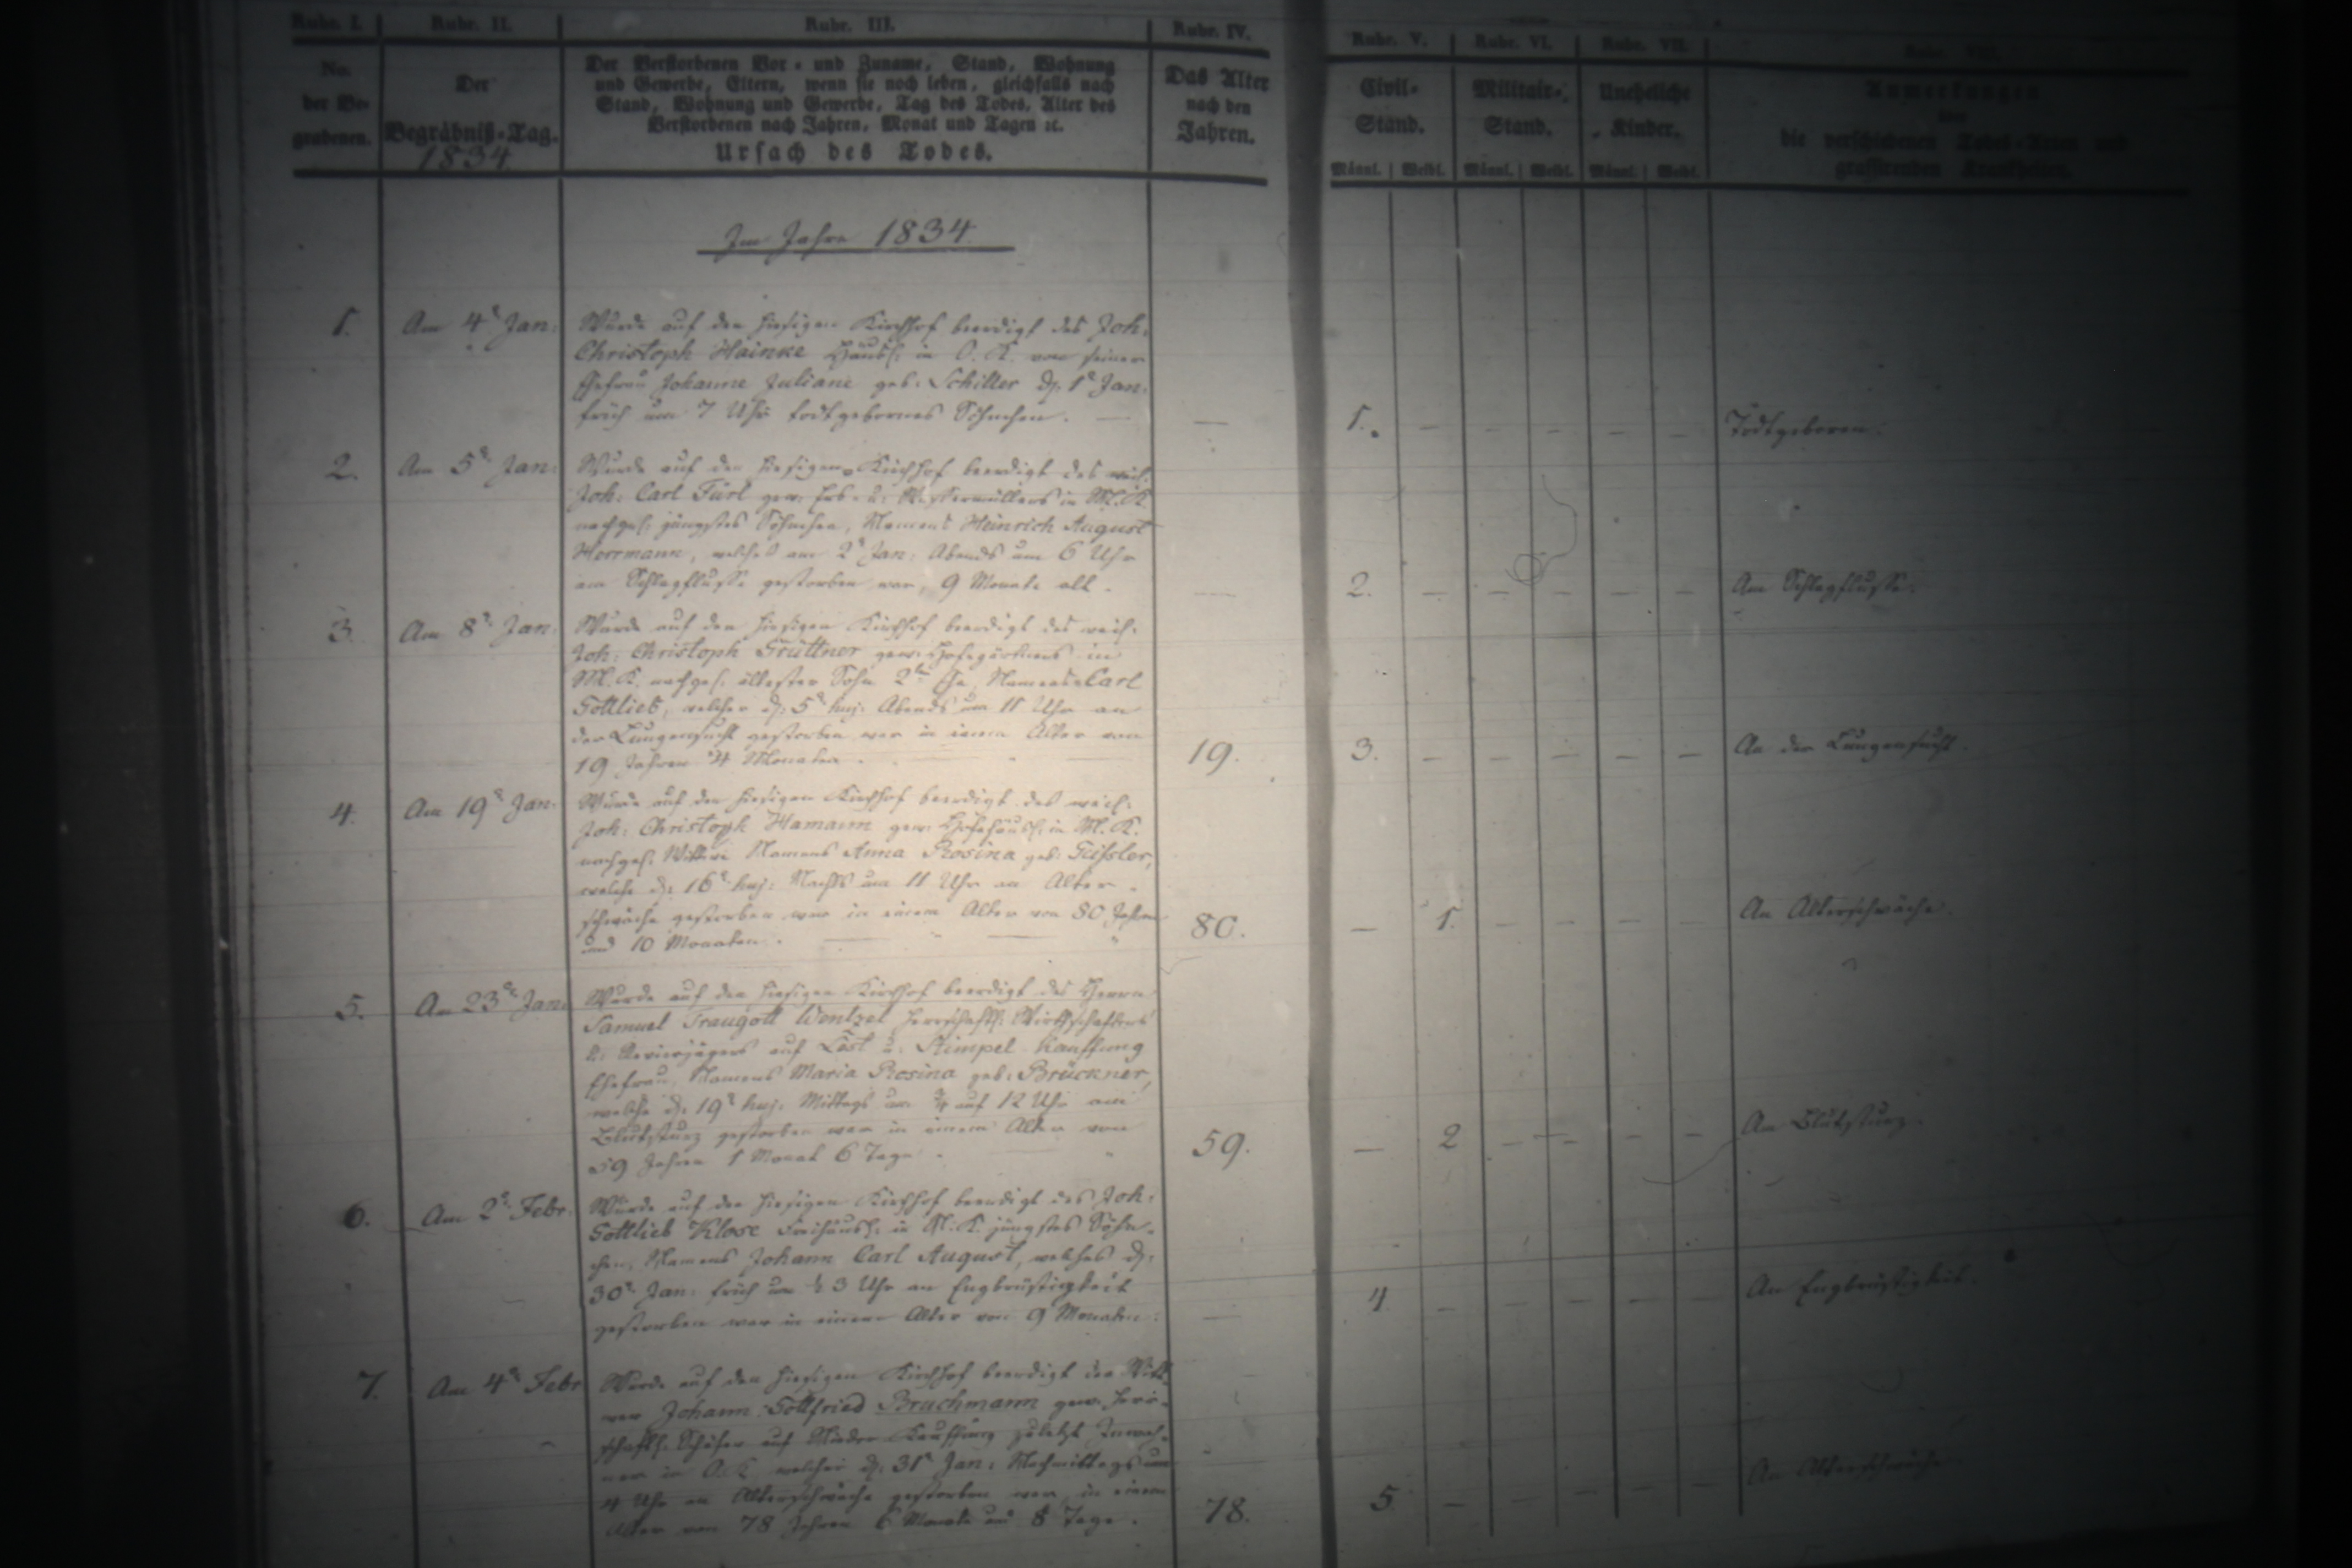 Rubr. I. Rubr. II. Rubr. III. Rubr. IV. Rubr. V. Rubr. VI. Rubr. VII. Rubr. VIII.
No.
der Be-
grabenen.
Der
Begräbniß-Tag.
1834.
Der Verstorbenen Vor- und Zuname, Stand, Wohnung
und Gewerbe, Eltern, wenn sie noch leben, gleichfalls nach
Stand, Wohnung und Gewerbe, Tag des Todes, Alter des
Verstorbenen nach Jahren, Monat und Tagen ꝛc.
Ursach des Todes.
Das Alter
nach den
Jahren.
Civil-
Stand.
Männl. Weibl.
Militair-
Stand.
Männl. Weibl.
Uneheliche
Kinder.
Männl. Weibl.
Anmerkungen
die verschiedenen Todes-Arten und
grassirenden Krankheiten.
Im Jahre 1834
1. Am 4t Jan:
Wurde auf den hiesigen Kirchhof beerdigt des Joh:
Christoph Hainke Häusl: in O. K. von seiner
Ehefrau Johanne Juliane geb: Schiller d: 1t Jan:
früh um 7 Uhr todtgebornes Söhnchen. —
— 1. — — — — — Todtgeboren.
2. Am 5t Jan:
Wurde auf den hiesigen Kirchhof beerdigt des weil:
Joh: Carl Fürl gew: Erb- u: Wassermüllers in M. K.
nachgel: jüngstes Söhnchen, Namens Heinrich August
Herrmann, welches am 2t Jan: Abends um 6 Uhr
am Schlagflusse gestorben war, 9 Monate alt.
— 2. — — — — — Am Schlagflusse.
3. Am 8t Jan:
Wurde auf den hiesigen Kirchhof beerdigt des weil:
Joh: Christoph Grüttner gew: Hofegärtners in
M. K. nachgel: ältester Sohn 2ter Ehe, Namens Carl
Gottlieb, welcher d: 5t huj: Abends um 11 Uhr an
der Lungensucht gestorben war in einem Alter von
19 Jahren Monaten.
19. 3. — — — — — An der Lungensucht.
4. Am 19t Jan:
Wurde auf den hiesigen Kirchhof beerdigt des weil:
Joh: Christoph Hamann gew: Hofehäusl: in M. K.
nachgel: Wittwe Namens Anna Rosina geb: Geißler,
welche d: 16t huj: Nachts um 11 Uhr an Alter-
schwäche gestorben war in einem Alter von 80 Jahren
und 10 Monaten.
80. — 1. — — — — An Alterschwäche.
5. Am 23t Jan:
Wurde auf den hiesigen Kirchhof beerdigt des Herrn
Samuel Traugott Wentzel herrschaftl: Wirthschafters
u: Revierjägers auf Löst u: Stimpel Kauffung
Ehefrau, Namens Maria Rosina geb: Brückner,
welche d: 19t huj: Mittags um ¾ auf 12 Uhr am
Blutsturz gestorben war in einem Alter von
59 Jahren 1 Monat 6 Tage.
59. — 2 — — — — Am Blutsturz.
6. Am 2t Febr:
Wurde auf den hiesigen Kirchhof beerdigt des Joh:
Gottlieb Klose Freihäusl: in M. K. jüngstes Söhn-
chen, Namens Johann Carl August, welches d:
30t Jan: früh um ½ 3 Uhr an Engbrüstigkeit
gestorben war in einem Alter von 9 Monaten.
— 4. — — — — — An Engbrüstigkeit.
7. Am 4t Febr
Wurde auf den hiesigen Kirchhof beerdigt der Witt-
wer Johann Gottfried Bruchmann gew: herr-
schaftl: Schäfer auf Nieder Kauffung zuletzt Inwoh-
ner in O. K. welcher d: 31t Jan: Nachmittags um
4 Uhr an Alterschwäche gestorben war in einem
Alter von 78 Jahren 6 Monate und 8 Tage.
78. 5 — — — — — An Alterschwäche.